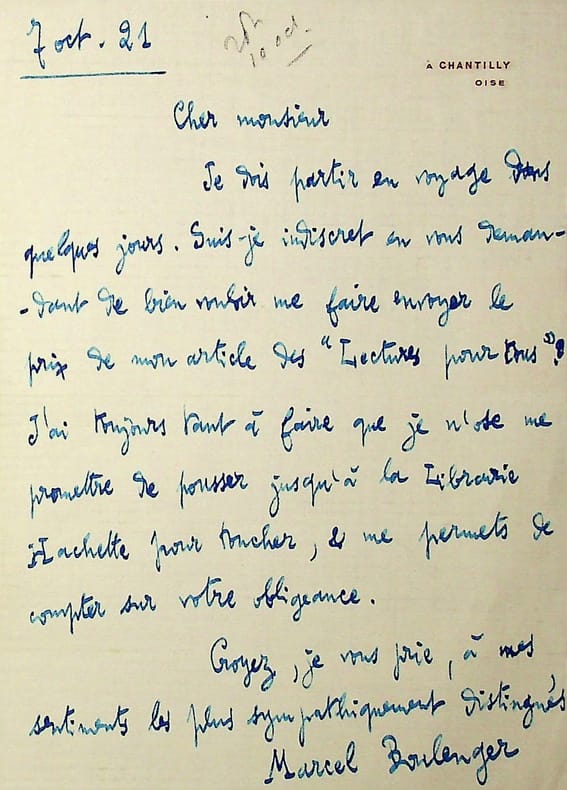 7 oct. 21
10 oct.
À CHANTILLY
OISE
Cher monsieur
Je dois partir en voyage dans
quelques jours. Suis-je indiscret en vous deman-
-dant de bien vouloir me faire envoyer le
prix de mon article des "Lectures pour tous"?
J'ai toujours tant à faire que je n'ose me
promettre de pousser jusqu'à la Librairie
Hachette pour toucher, & me permets de
compter sur votre obligeance.
Croyez, je vous prie, à mes
sentiments les plus sympathiquement distingués
Marcel Boulenger